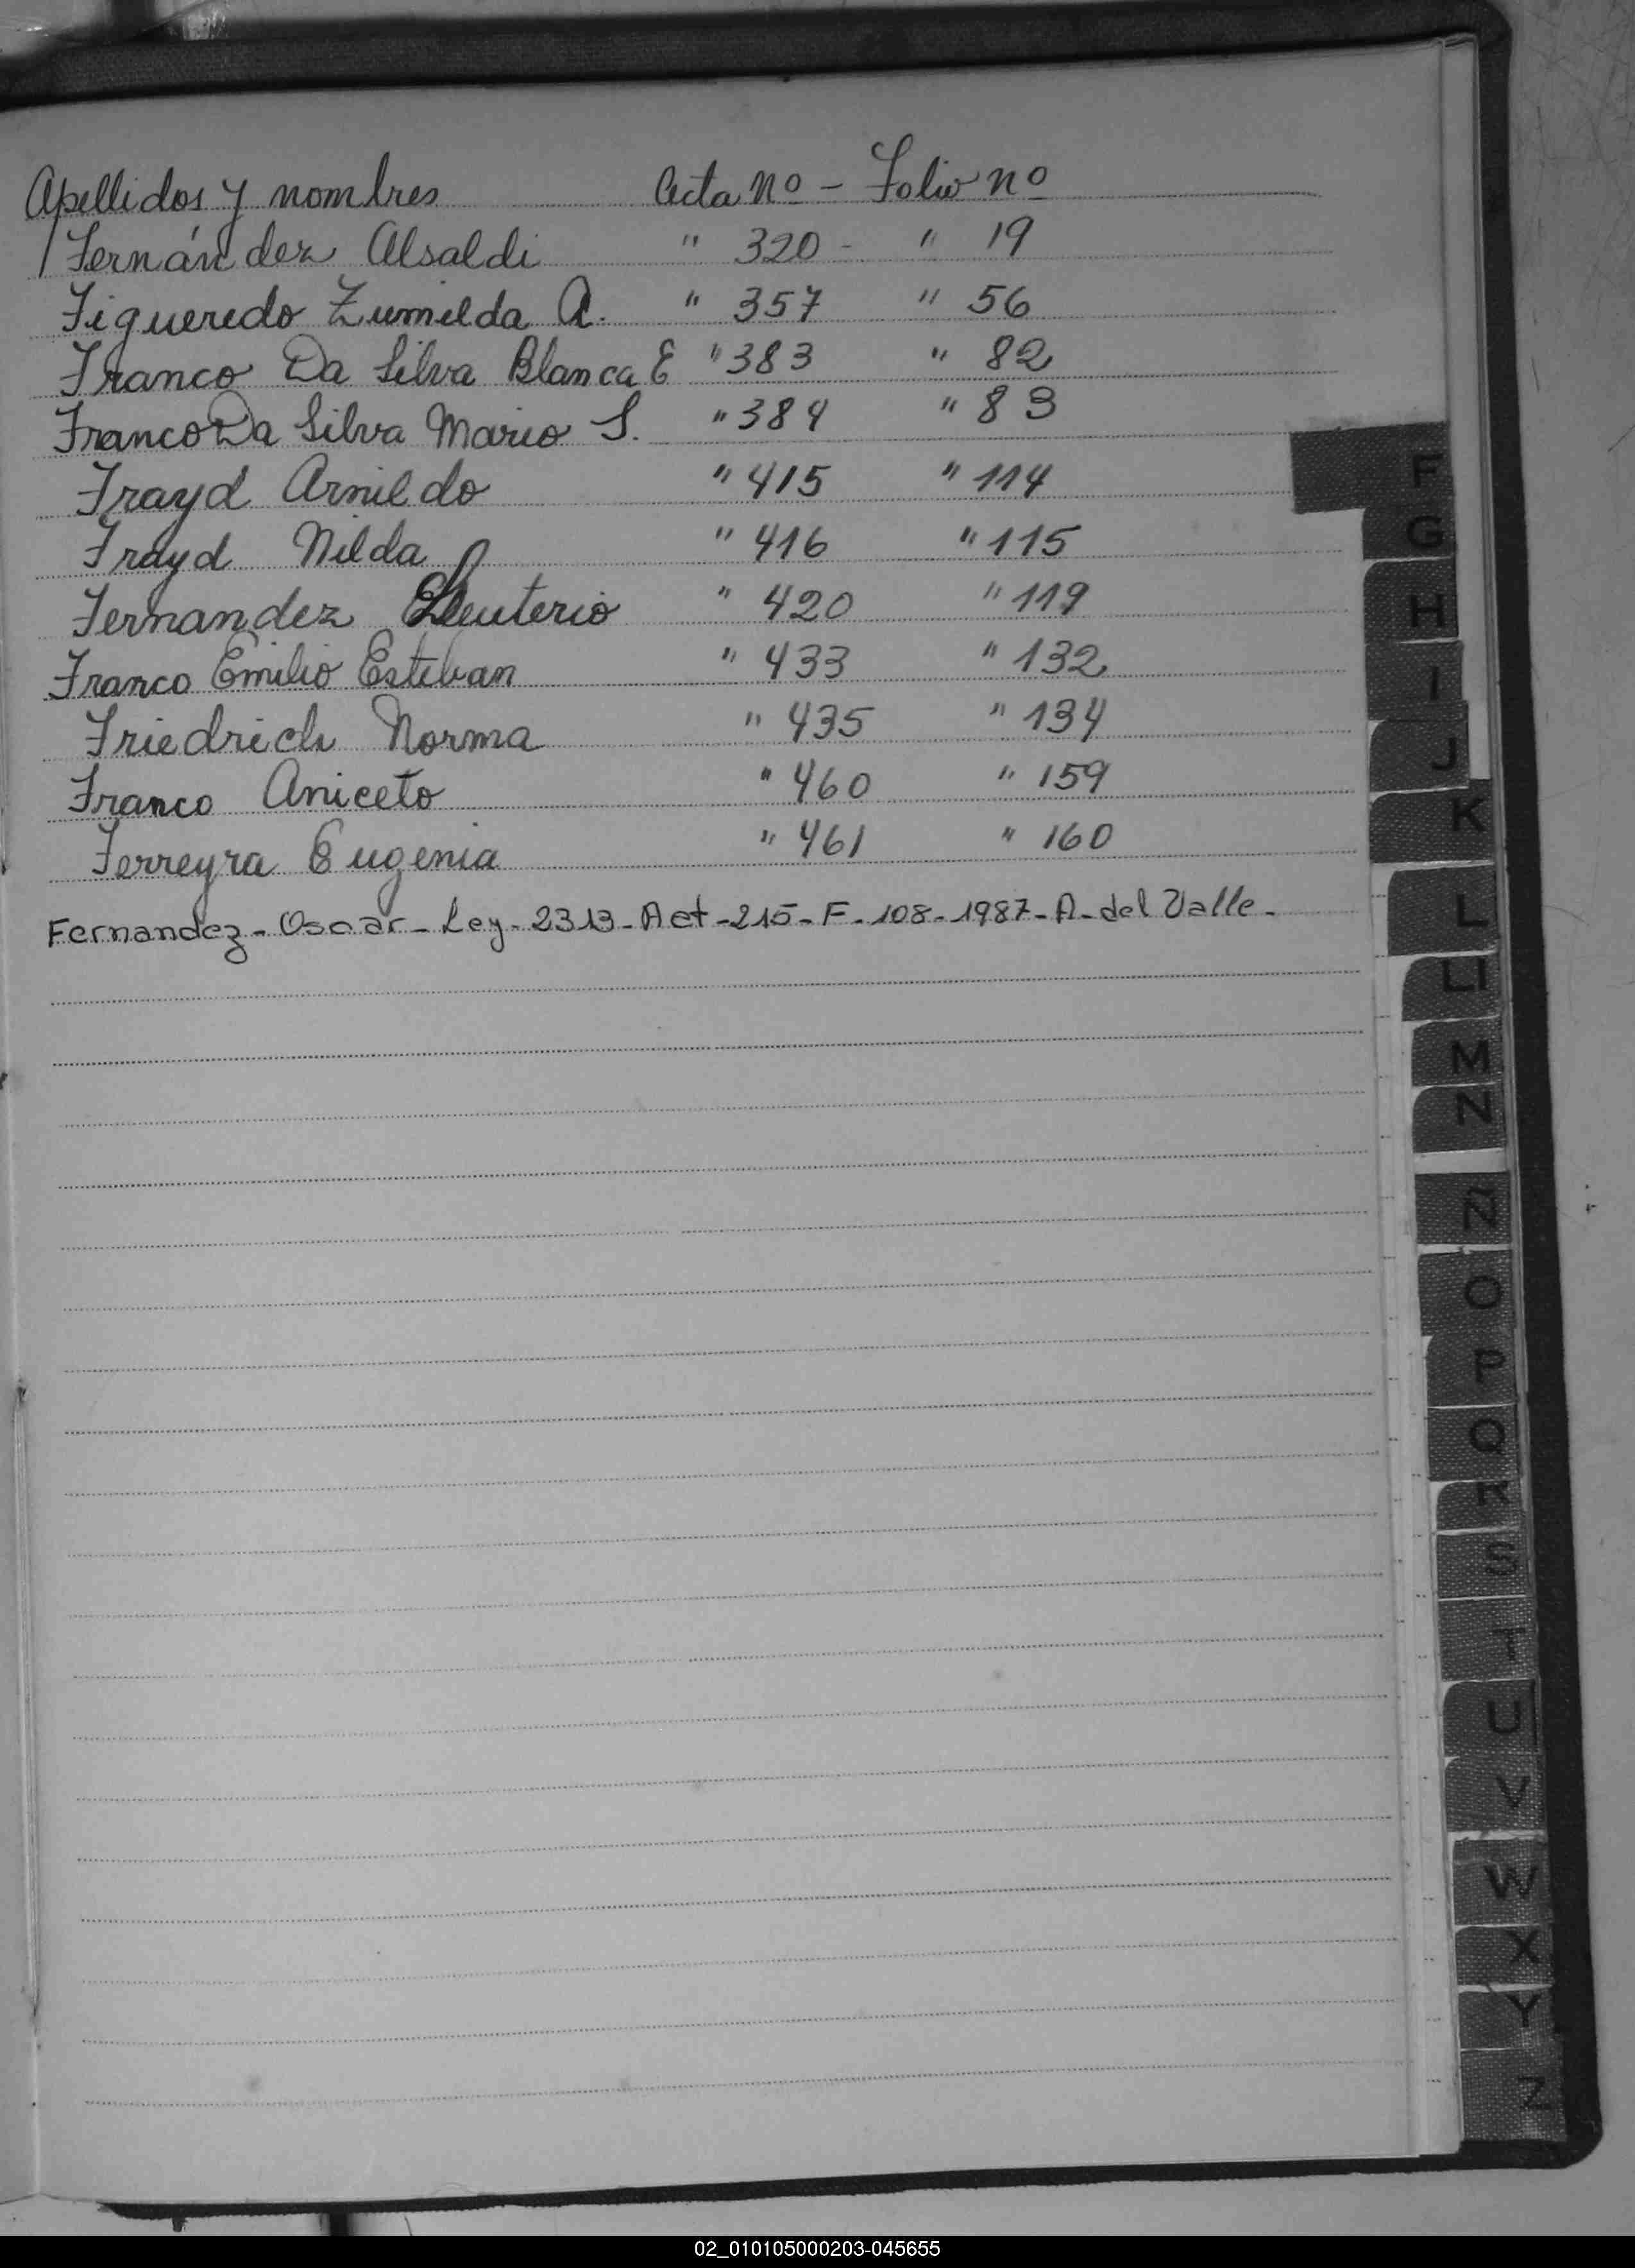 Apellidos y nombres Acta nº - Folio nº
Fernández Alsaldi " 320 - " 19
Figueredo Zumilda A. " 357 " 56
Franco Da Silva Blanca E " 383 " 82
Franco Da Silva Mario S. " 384 " 83
Frayd Arnildo " 415 " 114
Frayd Nilda " 416 " 115
Fernandez Eleuterio " 420 " 119
Franco Emilio Esteban " 433 " 132
Friedrich Norma " 435 " 134
Franco Aniceto " 460 " 159
Ferreyra Eugenia " 461 " 160
Fernandez - Oscar - Ley - 2313 - Act - 215 - F - 108 - 1987 - A - del Valle -
F
G
H
I
J
K
L
LI
M
N
Ñ
O
P
Q
R
S
T
U
V
W
X
Y
Z
02_010105000203-045655